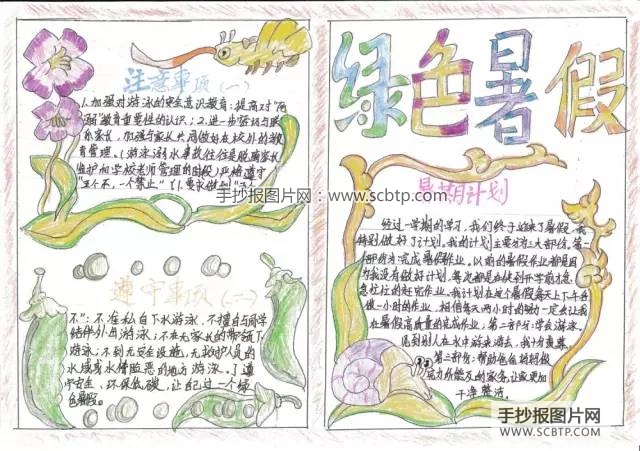 注意事项(一)
1.加强对游泳的安全意识教育:提高对"两
教育重要性的认识;2.进一步密切与联
系家长,加强与家长共同做好在校外的教
育管理。(游泳溺水事故往往是脱离家长
监护和学校老师管理的时段)严格遵守
遵守事项(二)
不":不在私自下水游泳,不擅自与同学
结伴外出游泳;不在无家长的带领下
游泳;不到无安全设施、无救护人员的
水域或水情险恶的地方游泳。了遵
守安全,环保低碳,让自己过一个绿
色暑假。
绿色暑假
暑期计划
经过一学期的学习,我们终于迎来了暑假,我
特别做好了计划。我的计划主要分为三大部份。第一
部份为完成暑假作业。以前的暑假作业都是因
为我没有做好计划,每次都是在快到开学前才急
急拉拉的赶完作业。我计划在这个暑假每天上下午各
做一小时的作业,相信每天两小时的功一定会让我
在暑假高质量的完成作业;第二部分:学会游泳。
见到别人在水中游来游去,我十分羡慕
第三部分:帮助爸爸妈妈做
力所能及的家务,让家更加
干净整洁。
手抄报图片网 www.scbtp.com
手抄报图片网
WWW.SCBTP.COM